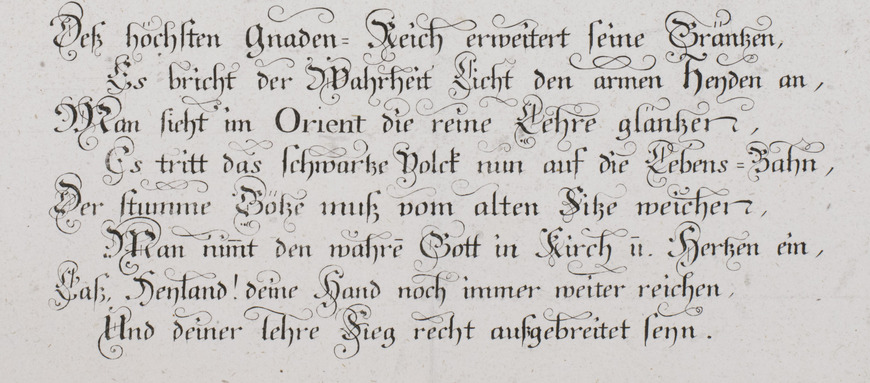 Deß höchsten Gnaden= Reich erweitert seine Gräntzen,
Es bricht der Wahrheit Licht den armen Heyden an,
Man sieht im Orient die reine Lehre gläntzen,
Es tritt das schwartze Volck nun auf die Lebens=Bahn,
Der stumme Götze muß vom alten Sitze weichen,
Man nim̅t den wahrē Gott in Kirch ū. Hertzen ein,
Laß, Heyland! deine Hand noch immer weiter reichen,
Und deiner Lehre Sieg recht außgebreitet seyn.